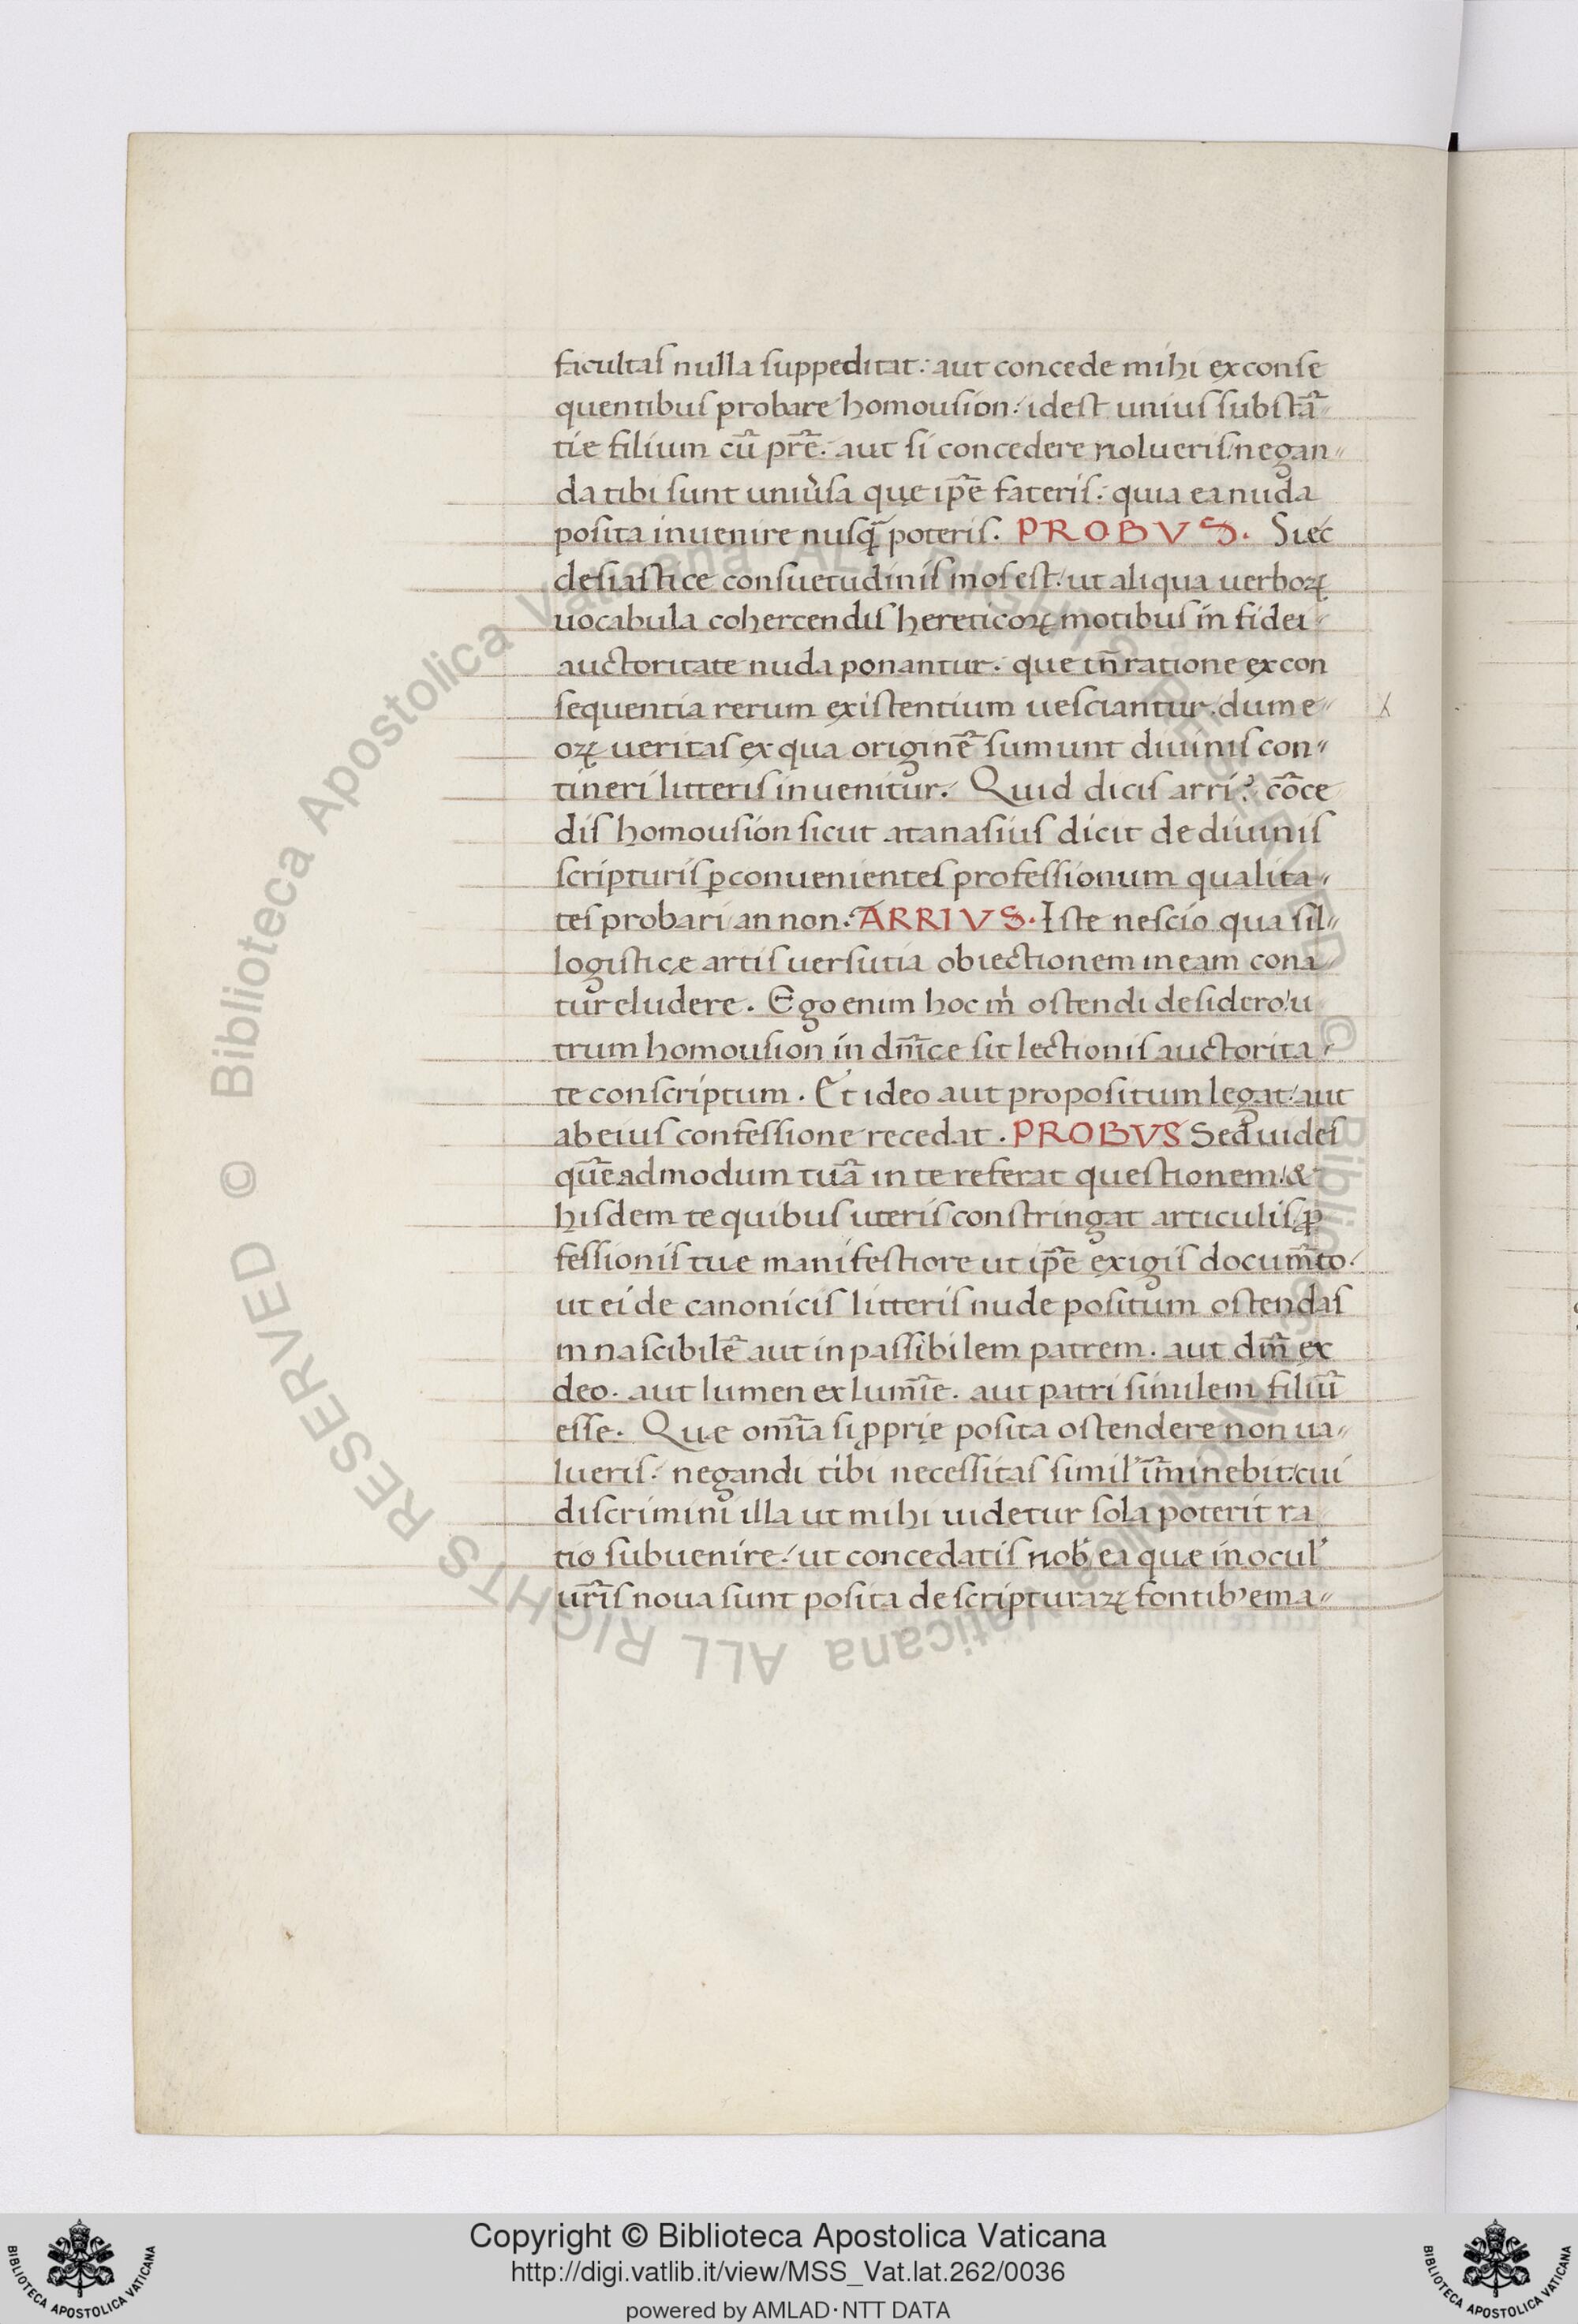 facultas nulla suppeditat: aut concede mihi ex conse
quentibus probare homousion: idest unius substā
tie filium cū prē. aut si concedere nolueris: negan
da tibi sunt uniu̓sa quę ip̄e fateris: quia ea nuda
posita inuenire nusq̄ poteris. PROBVS. Si ec
clesiastice consuetudinis mos est: ut aliqua uerboꝝ
uocabula cohercendis hereticoꝝ motibus in fidei
auctoritate nuda ponantur. que tn̄ ratione ex con
sequentia rerum existentium uesciantur. dum e
oꝝ ueritas ex qua originē sumunt diuinis con
tineri litteris inuenitur. Quid dicis arri? cōce
dis homousion sicut atanasius dicit de diuinis
scripturis ꝑ conuenientes professionum qualita
tes probari an non. ARRIVS. Iste nescio qua sil
logisticę artis uersutia obiectionem meam cona
tur eludere. Ego enim hoc m̓ ostendi desidero: u
trum homousion in dn̄ice sit lectionis auctorita
te conscriptum. Et ideo aut propositum legat: aut
ab eius confessione recedat. PROBVS Sed uides
quēadmodum tuā in te referat questionem: &
hisdem te quibus uteris constringat articulis: ꝓ
fessionis tue manifestiore ut ip̄e exigis docum̄to.
ut ei de canonicis litteris nude positum ostendas
innascibilē aut inpassibilem patrem. aut dm̄ ex
deo. aut lumen ex lum̄ie. aut patri similem filiū
esse. Que om̄ia si ꝓprie posita ostendere non ua
lueris: negandi tibi necessitas simil' īminebit: cui
discrimini illa ut mihi uidetur sola poterit ra
tio subuenire: ut concedatis nob' ea quæ in ocul'
ur̄is noua sunt posita de scripturaꝝ fontib' ema
Biblioteca Apostolica Vaticana ALL RIGHTS RESERVED ©
Copyright © Biblioteca Apostolica Vaticana
http://digi.vatlib.it/view/MSS_Vat.lat.262/0036
powered by AMLAD·NTT DATA
BIBLIOTECA APOSTOLICA VATICANA
BIBLIOTECA APOSTOLICA VATICANA